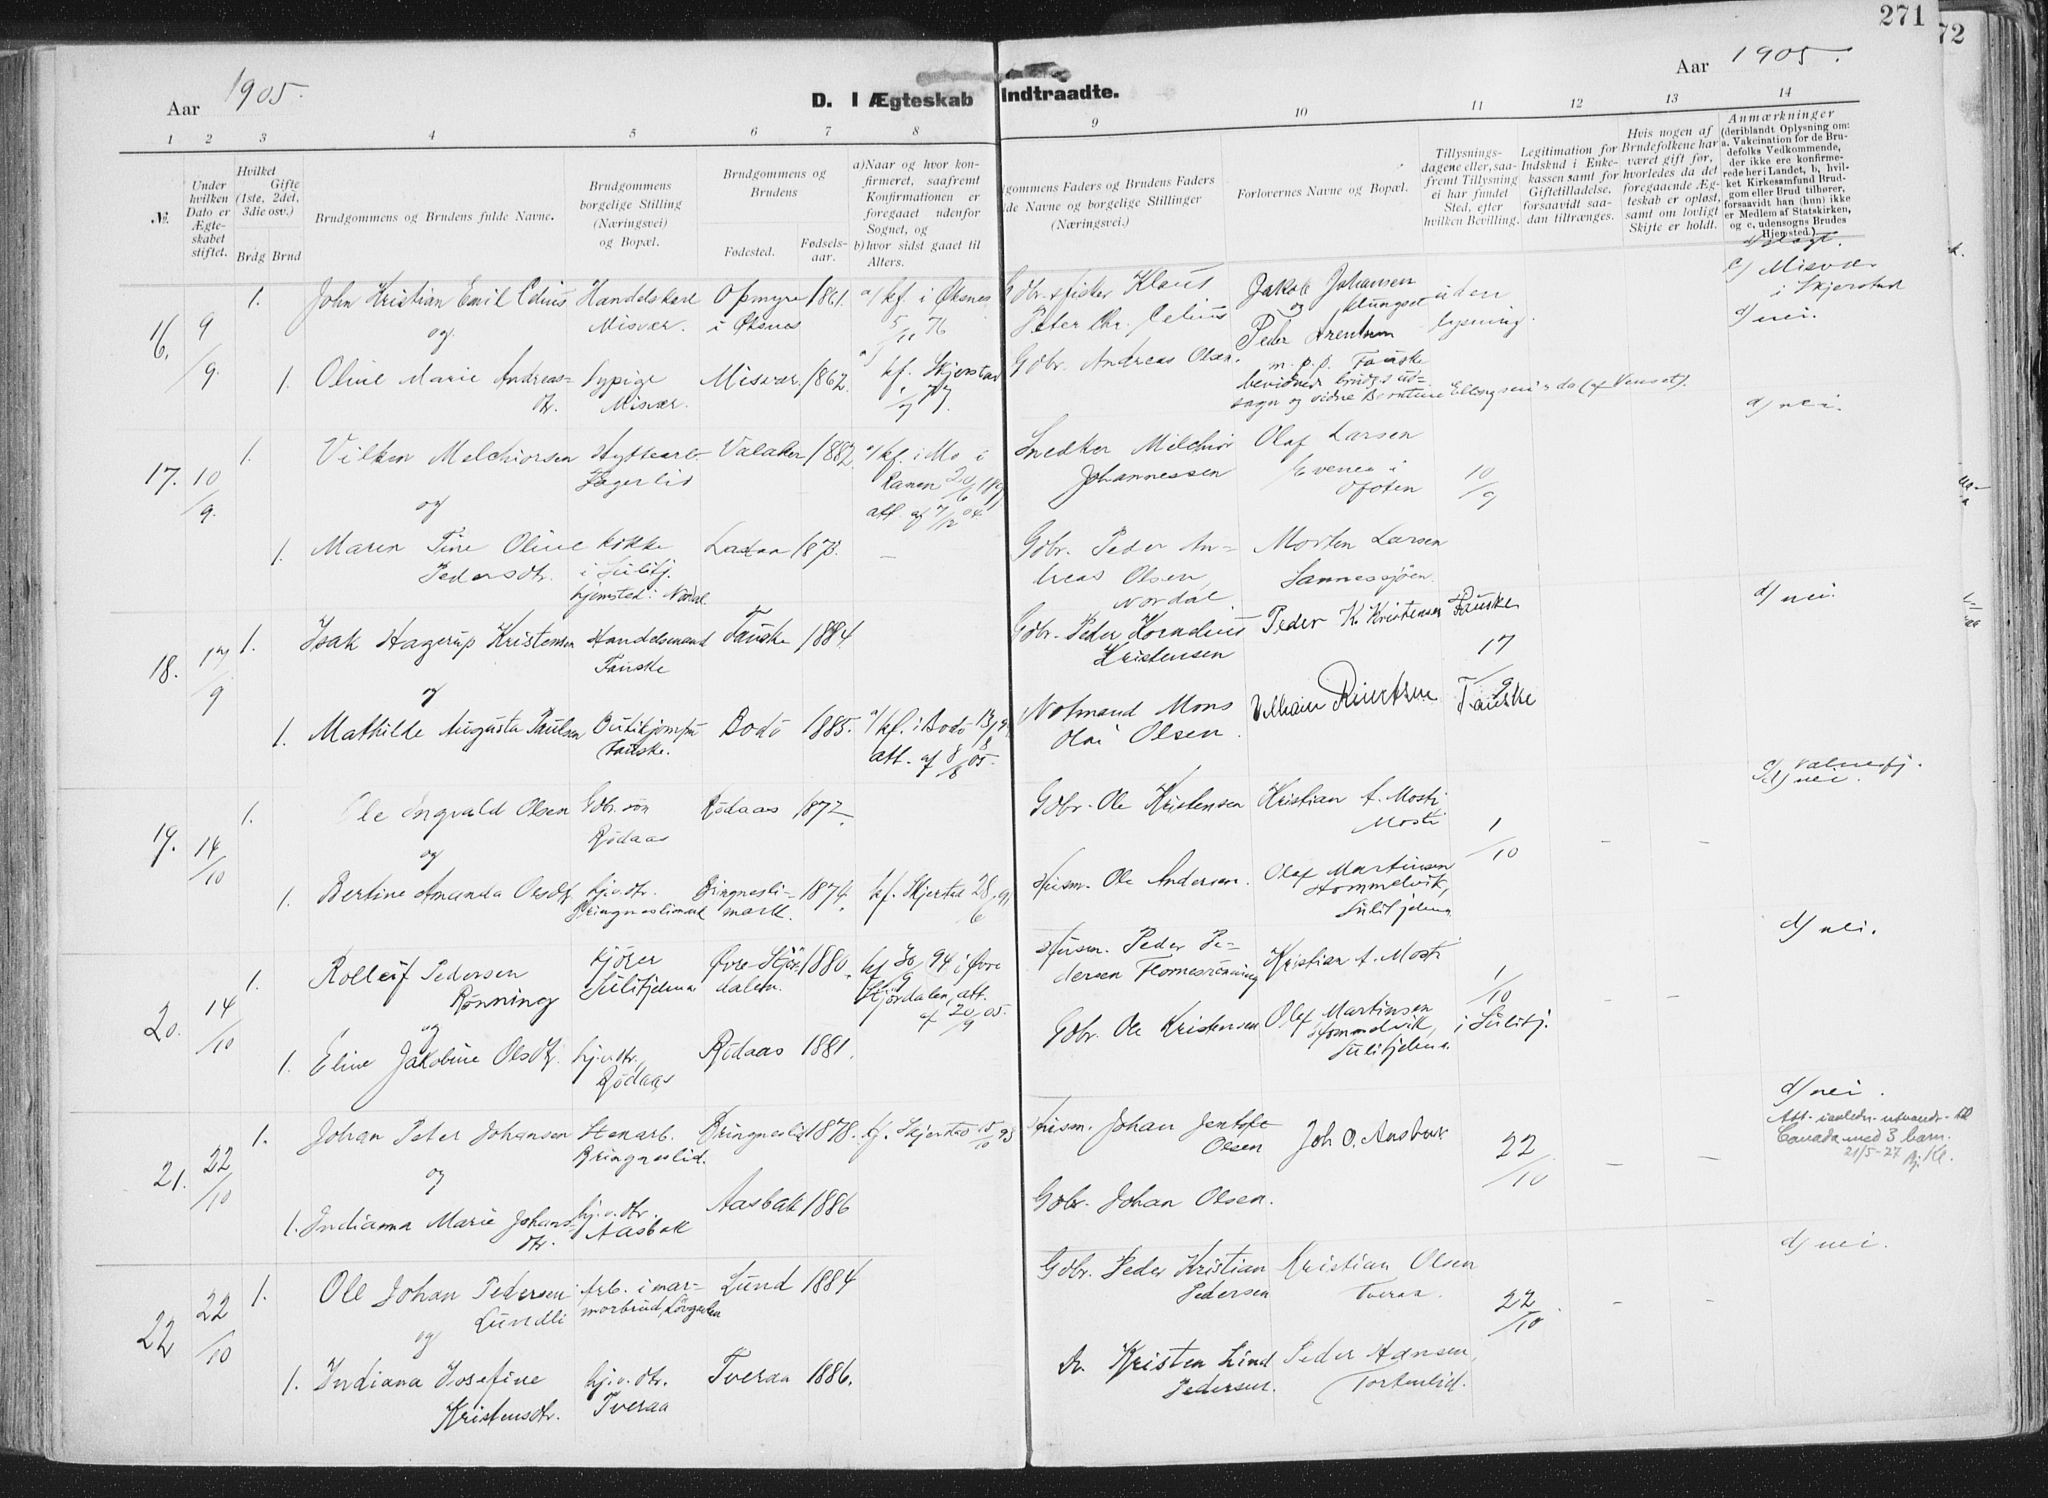 271
72
Aar 1905.
D. I Ægteskab Indtraadte.
Aar 1905.
1 2 3 4 5 6 7 8 9 10 11 12 13 14
№.
Under hvilken Dato er Ægteskabet stiftet.
Hvilket Gifte (1ste, 2det, 3die osv.)
Brdg Brud
Brudgommens og Brudens fulde Navne.
Brudgommens borgelige Stilling (Næringsvei) og Bopæl.
Brudgommens og Brudens
Fødested.
Fødsels-aar.
a) Naar og hvor konfirmeret, saafremt Konfirmationen er foregaaet udenfor Sognet, og
b) hvor sidst gaaet til Alters.
gommens Faders og Brudens Faders
de Navne og borgelige Stillinger
(Næringsvei.)
Forlovernes Navne og Bopæl.
Tillysnings-dagene eller, saafremt Tillysning ei har fundet Sted, efter hvilken Bevilling.
Legitimation for Indskud i Enkekassen samt for Giftetilladelse, forsaavidt saadan tiltrænges.
Hvis nogen af Brudefolkene har været gift for, hvorledes da det foregaaende Ægteskab er opløst, samt om lovligt Skifte er holdt.
Anmærkninger
(deriblandt Oplysning om: a. Vakcination for de Brudefolks Vedkommende, der ikke ere konfirmerede her i Landet, b, hvilket Kirkesamfund Brudgom eller Brud tilhører, forsaavidt han (hun) ikke er Medlem af Statskirken, og c, udensogns Brudes Hjemsted.)
16. 9/9. 1. John Kristian Emil Celius Handelskarl Misvær. Opmyre i Øksnes 1861. a) kf. i Øksnes 5/11 76 Gdbr. & fisker Klaus Peter Chr. Celius Jakob Johansen og Klungset uden lysning. c) Misvær i Skjerstad d) nei.
og
1. Oline Marie Andreas-dtr. Sypige Misvær. Misvær. 1862. kf. Skjerstad Gdbr. Andreas Olsen. Peder Arentsen m. p. p. Fauske
17. 10/9. 1. Vilken Melchiorsen Valaker 1882. a) kf. i Mo i Ranen att. af 7/12 04. Snedker Milchior Johannessen Olaf Larsen Evenes i Ofoten 10/9 d) nei.
og
1. Maren Tine Oline Pedersdtr. kokke i Sulitj. hjemsted: Nordal. 187 – Gdbr. Peder Andreas Olsen, Nordal. Morten Larsen Sannessjøen.
18. 17/9 1. Isak Hagerup Kristensen Handelsmand Fauske Fauske 1884. Gdbr. Peder Kornelius Kristensen Peder K. Kristensen Fauske 17/9 d) nei.
og
1. Mathilde Augusta Paulsen Butikjomfru Fauske. Bodø 1885. a) kf. i Bodø att. af 8/8 05. Notmand Mons Olai Olsen. Fauske
19. 14/10 1. Ole Ingvald Olsen Gdbr. søn Rødaas Rødaas 1872. Gdbr. Ole Kristensen Kristian A. Mosti Mosti 1/10 – – c) Valnesfj. d) nei.
og
1. Bertine Amanda Olsdtr. hjv. dtr. Bringneslimark Bringnesli-mark. 1874. kf. Skjerstad 28/6 91 Husm. Ole Andersen. Olaf Martinsen Hommelvik, Sulitjelma
20. 14/10 1. Rolleif Pedersen Rønning kjører Sulitjelma Øvre-Stjør-dalen. 1880. kf. 30/9 94 i Øvre Stjørdalen, att. af 20/9 05. Husm. Peder Pedersen Flornesrønning Kristian A. Mosti 1/10 d) nei.
og
1. Eline Jakobine Olsdtr. hjv. dtr. Rødaas Rødaas 1881. Gdbr. Ole Kristensen Olaf Martinsen Hommelvik, Sulitjelma. i Sulitj.
21. 22/10 1. Johan Peter Johansen Stenarb. Bringneslid. Bringneslid 1878. kf. Skjerstad Husm. Johan Jentoft Olsen Joh. O. Aasbak 22/10 – – d) nei.
Att. i anledn. utvandr. til Canada med 3 barn. 21/5-27
og
1. Indianna Marie Johans-dtr. hjv. dtr. Aasbak Aasbak 1886 Gdbr. Johan Olsen.
22 22/10 1. Ole Johan Pedersen Lundli Arb. i marmorbrud, Løvgavlen Lund 1884 Gdbr. Peder Kristian Pedersen Kristian Olsen Tveraa. 22/10 – – d) nei.
og
1. Indiana Josefine Kristensdtr. hjv. dtr. Tveraa Tveraa 1886. Kristen Lind Pedersen. Peder Hansen, Tortenlid.